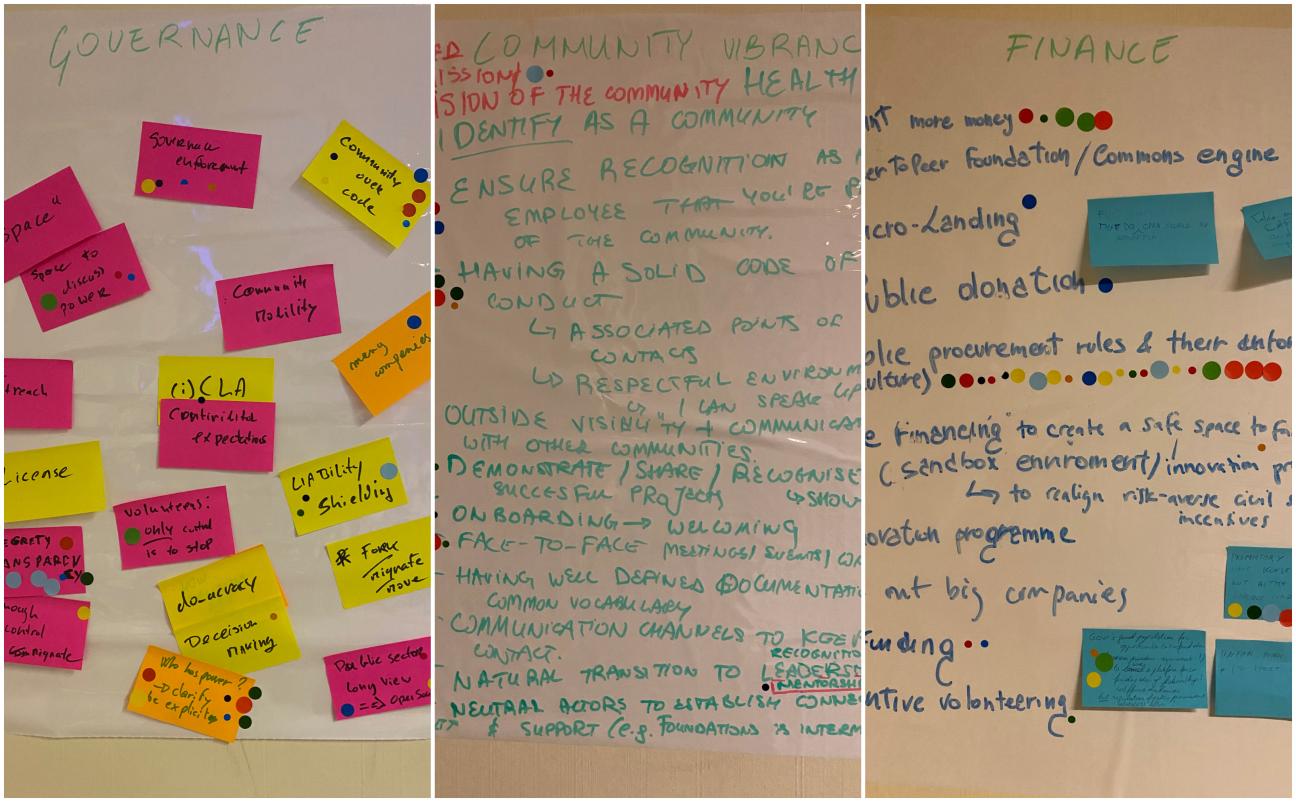 GOVERNANCE
Governance
enforcement
Community
over
code
Space"
Space to
discuss
power
Community
Mobility
many
companies
treach
(i)CLA
Contributor
expectations
License
LIABILITY
Shielding
Volunteers:
only control
is to stop
EGRETY
ANSPARCY
* Fork
migrate
move
nough
control
migrate
do-ocracy
Deceision
MAKING
Who has power?
→ clarify
be explicit
Public sector
long view
=> Open Sour
COMMUNITY VIBRANC
ISSION/
HEALTH
ISION OF THE COMMUNITY
IDENTIFY AS A COMMUNITY
ENSURE RECOGNITION AS
EMPLOYEE THAT YOU'RE P
OF THE COMMUNITY.
- HAVING A SOLID CODE OF
CONDUCT
↳ ASSOCIATED POINTS OF
CONTACTS
↳ RESPECTFUL ENVIRONM
↳ "I CAN SPEAK UP
OUTSIDE VISIBILITY + COMMUNICAT
WITH OTHER COMMUNITIES.
DEMONSTRATE / SHARE / RECOGNISE
SUCCESFUL PROJECTS ↳SHOW
ONBOARDING → WELCOMING
FACE-TO-FACE MEETINGS/ EVENTS/ CO
- HAVING WELL DEFINED DOCUMENTATI
COMMON VOCABULARY
- COMMUNICATION CHANNELS TO KEEP
CONTACT.
RECOGNITIO
NATURAL TRANSITION TO LEADERS
MENTORSHI
- NEUTRAL ACTORS TO ESTABLISH CONNE
& SUPPORT (e.g. FOUNDATIONS as INTERM
FINANCE
nt more money
er to Peer Foundation/Commons engine
icro-Landing
ublic donation
blic procurement rules & their enfor
ulture)
e Financing" to create a safe space to fa
(sandbox enviroment/innovation pr
↳ to realign risk-averse civil s
incentives
ovation programme
big companies
Funding
ntive volunteering